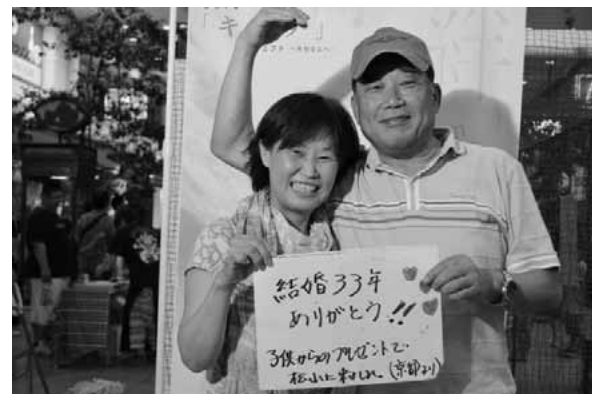 「キ
結婚33年
ありがとう!!
子供からのプレゼントで
松山に来ました(京都より)